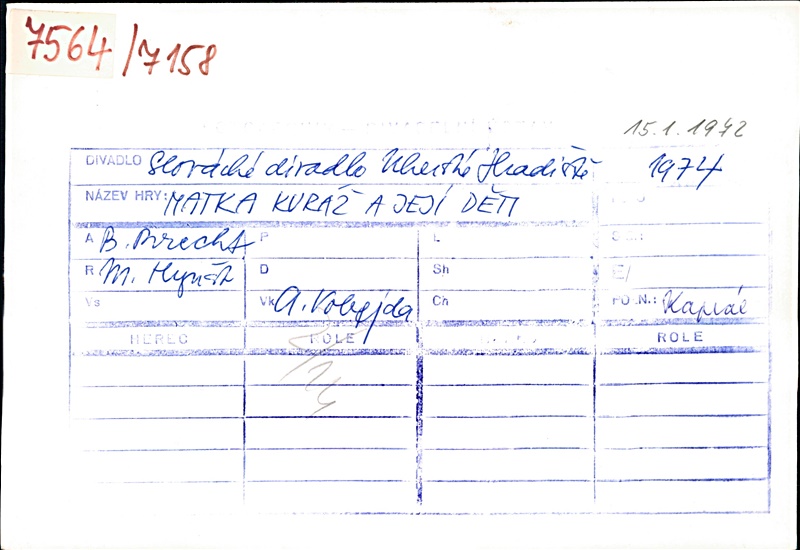 7564/7158
15.1.1942
DIVADLO Slovácké divadlo Uherské Hradiště 1974
NÁZEV HRY: MATKA KURÁŽ A JEJÍ DĚTI
A B. Brecht P L
R M. Hynšt D Sh
Vs Vk A. Vobejda Ch POZN.: Kaplál
HEREC ROLE ROLE